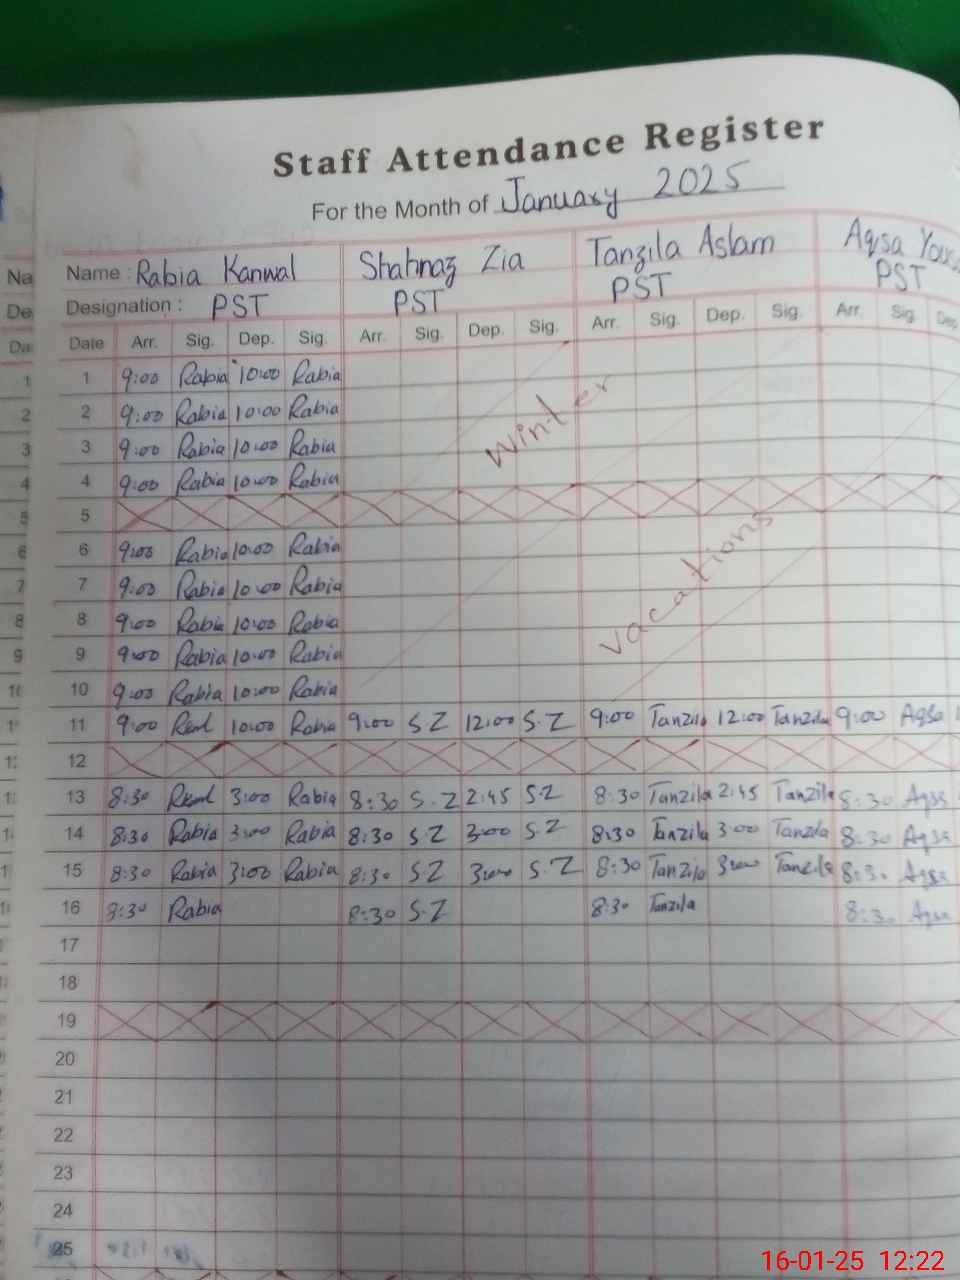 Staff Attendance Register
For the Month of January 2025
Name : Rabia Kanwal Shahnaz Zia Tanzila Aslam Aqsa
Designation : PST PST PST PST
Date Arr. Sig. Dep. Sig. Arr. Sig. Dep. Sig. Arr. Sig. Dep. Sig. Arr. Sig. Dep.
1 9:00 Rabia 10:00 Rabia
2 9:00 Rabia 10:00 Rabia
3 9:00 Rabia 10:00 Rabia
4 9:00 Rabia 10:00 Rabia
winter
5
6 9:00 Rabia 10:00 Rabia
7 9:00 Rabia 10:00 Rabia
8 9:00 Rabia 10:00 Rabia
9 9:00 Rabia 10:00 Rabia
10 9:00 Rabia 10:00 Rabia
vacations
11 9:00 10:00 Rabia 9:00 S.Z 12:00 S.Z 9:00 Tanzila 12:00 Tanzila 9:00 Aqsa
12
13 8:30 3:00 Rabia 8:30 S.Z 2:45 S.Z 8:30 Tanzila 2:45 Tanzila 8:30 Aqsa
14 8:30 Rabia 3:00 Rabia 8:30 S.Z 3:00 S.Z 8:30 Tanzila 3:00 Tanzila 8:30 Aqsa
15 8:30 Rabia 3:00 Rabia 8:30 S.Z 3:00 S.Z 8:30 Tanzila 3:00 Tanzila 8:30 Aqsa
16 8:30 Rabia 8:30 S.Z 8:30 Tanzila 8:30 Aqsa
17
18
19
20
21
22
23
24
25
16-01-25 12:22